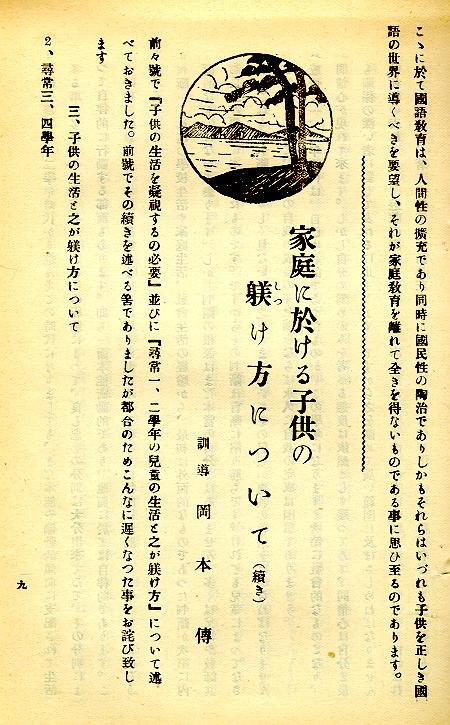 こゝに於て國語教育は、人間性の擴充であり同時に國民性の陶冶でありしかもそれらはいづれも子供を正しき國
語の世界に導くべきを要望し、それが家庭教育を離れて全きを得ないものである事に思ひ至るのであります。
家庭に於ける子供の
躾け方について(續き)
しつ
訓導 岡本傳
前々號で『子供の生活を凝視するの必要』並びに『尋常一、二學年の兒童の生活と之が躾け方』について述
べておきました。前號でその續きを述べる筈でありましたが都合のためこんなに遲くなつた事をお詫び致し
ます
三、子供の生活と之が躾け方について
2、尋常三、四學年
九